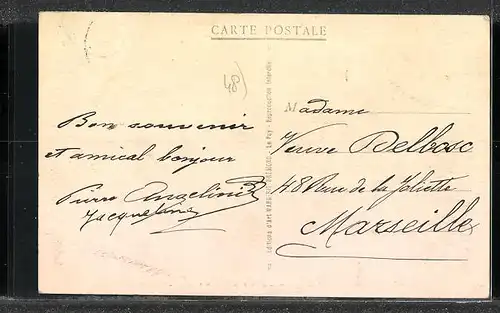 CARTE POSTALE
48)
Bon souvenir
et amical bonjour
Pierre Angelini
Jacqueline
Madame
Veuve Delbosc
48 Rue de la Joliette
Marseille
Editions d'Art - Le Puy - Reproduction Interdite